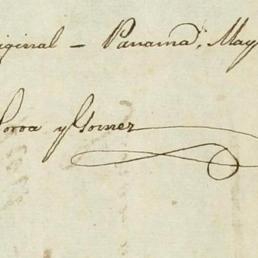 iginal – Panamá, May
oroa y Gomez